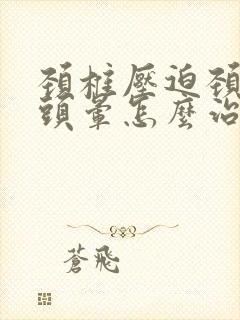 頚椎壓迫頚
頭暈怎麼治
蒼飛